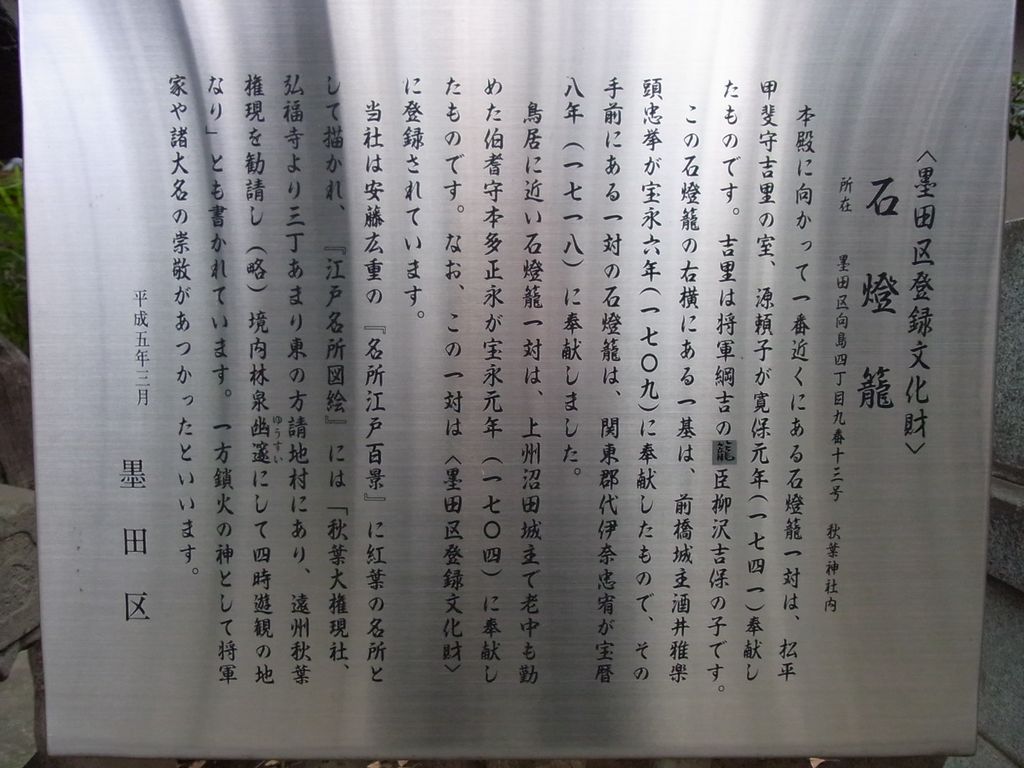 〈墨田区登録文化財〉
石燈籠
所在 墨田区向島四丁目九番十三号 秋葉神社内
本殿に向かって一番近くにある石燈籠一対は、松平
甲斐守吉里の室、源頼子が寛保元年(一七四一)奉献し
たものです。吉里は将軍綱吉の寵臣柳沢吉保の子です。
この石燈籠の右横にある一基は、前橋城主酒井雅楽
頭忠挙が宝永六年(一七〇九)に奉献したもので、その
手前にある一対の石燈籠は、関東郡代伊奈忠宥が宝暦
八年(一七一八)に奉献しました。
鳥居に近い石燈籠一対は、上州沼田城主で老中も勤
めた伯耆守本多正永が宝永元年(一七〇四)に奉献し
たものです。なお、この一対は〈墨田区登録文化財〉
に登録されています。
当社は安藤広重の『名所江戸百景』に紅葉の名所と
して描かれ、『江戸名所図絵』には「秋葉大権現社、
弘福寺より三丁あまり東の方請地村にあり、遠州秋葉
権現を勧請し(略)境内林泉幽邃にして四時遊観の地
ゆうすい
なり」とも書かれています。一方鎮火の神として将軍
家や諸大名の崇敬があつかったといいます。
平成五年三月
墨田区